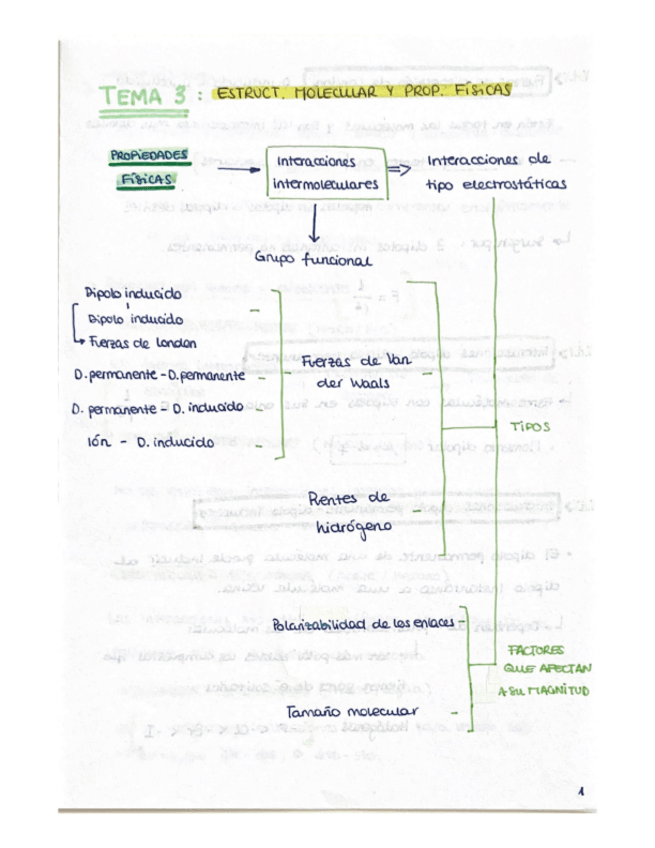 TEMA 3 : ESTRUCT. MOLECULAR Y PROP. FÍSICAS
PROPIEDADES
FÍSICAS
Interacciones
intermoleculares
Interacciones de
tipo electrostáticas
Grupo funcional
Dipolo inducido
Dipolo inducido
Fuerzas de London
D. permanente - D. permanente
D. permanente - D. inducido
Ión - D. inducido
Fuerzas de Van
der Waals
TIPOS
Puentes de
hidrógeno
Polarizabilidad de los enlaces
Tamaño molecular
FACTORES
QUE AFECTAN
A SU MAGNITUD
1